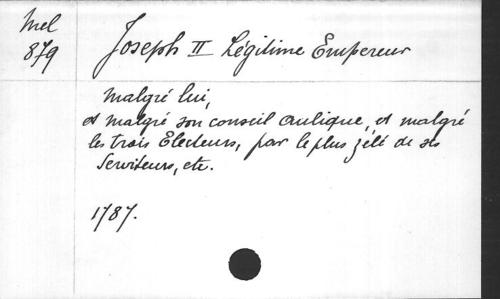 Mel
879
Joseph II Légitime Empereur
malgré lui,
et malgré son conseil aulique, et malgré
les trois Electeurs, par le plus zélé de ses
Serviteurs, etc.
1787.